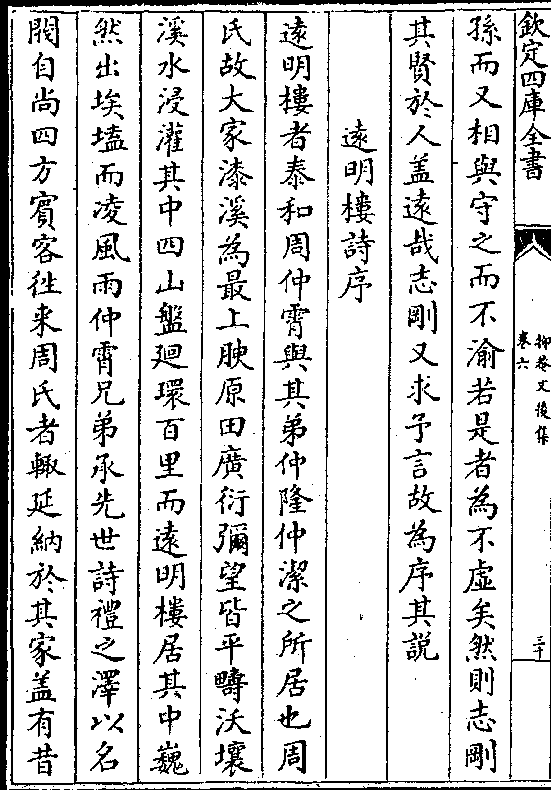 欽定四庫全書
抑菴文後集
卷六
三十
孫而又相與守之而不渝若是者為不虛矣然則志剛
其賢於人盖遠哉志剛又求予言故為序其説
遠明樓詩序
遠明樓者泰和周仲霄與其弟仲隆仲潔之所居也周
氏故大家漆溪為最上腴原田廣衍彌望皆平疇沃壤
溪水浸灌其中四山盤廻環百里而遠明樓居其中巍
然出埃壒而凌風雨仲霄兄弟承先世詩禮之澤以名
閥自尚四方賓客往来周氏者輙延納於其家盖有昔